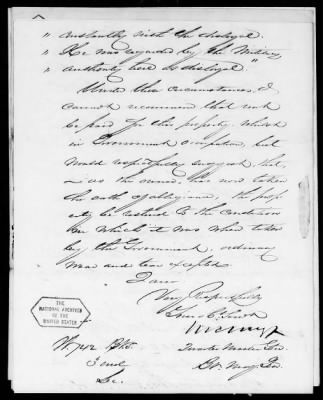 " constantly with the disloyal.
" He was regarded by the Military
" authority here as disloyal."
Under these circumstances I
cannot recommend that rent
be paid for this property whilst
in Government occupation, but
would respectfully suggest, that,
as the owner has now taken
the oath of allegiance, the prop
erty be restored to the condition
in which it was when taken
by the Government, ordinary
wear and tear excepted
I am
Very Respectfully
Your Obt. Servt.
Quarter Master Gen
Bt. Maj. Gen.
3 encl
THE
NATIONAL ARCHIVES
OF THE
UNITED STATES